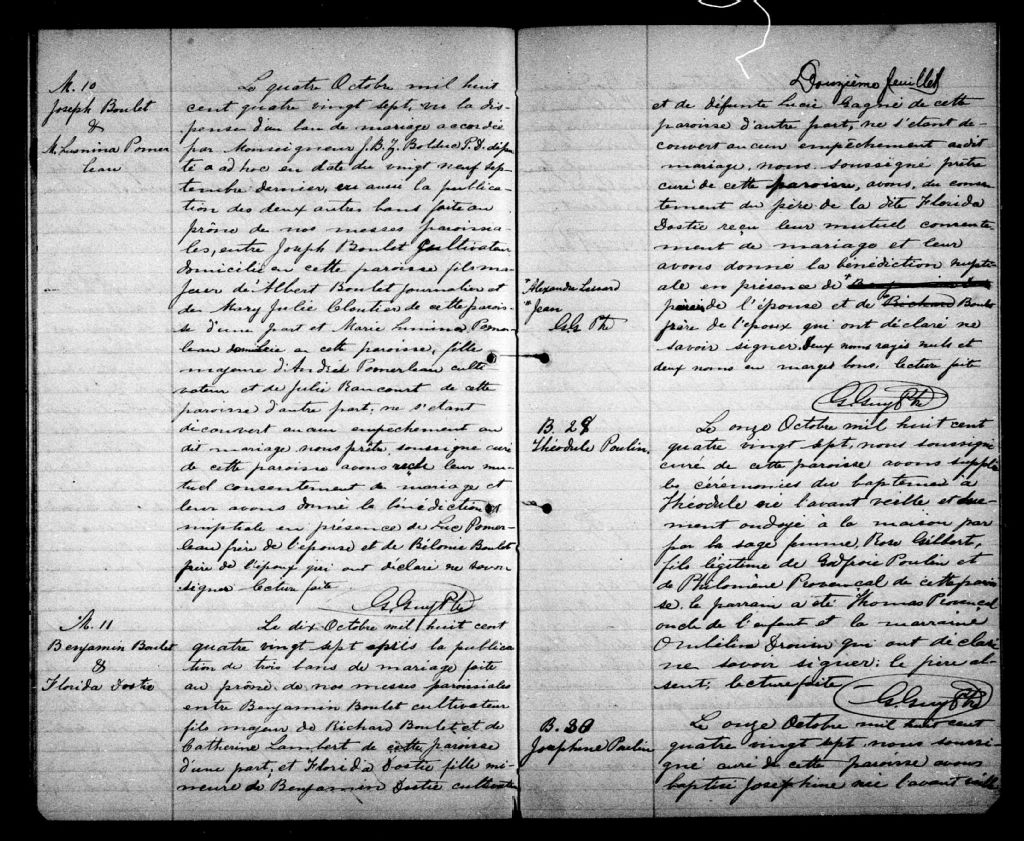 M. 10
Joseph Boulet
&
M. Lumina Pomer
leau
Le quatre Octobre mil huit
cent quatre vingt sept, vu la dis-
pense d'un ban de mariage accordée
par Monseigneur J.B.Z. Bolduc P.D. dépu-
té ad hoc en date du vingt neuf sep-
tembre dernier, vu aussi la publica-
tion des deux autres bans faite au
prône de nos messes paroissia-
les, entre Joseph Boulet Cultivateur
domicilié en cette paroisse fils ma-
jeur d'Albert Boulet journalier et
de Mary Julie Cloutier de cette parois-
se d'une part et Marie Lumina Pomer-
leau domiciliée en cette paroisse, fille
majeure d'André Pomerleau culti-
vateur et de Julie Rancourt de cette
paroisse d'autre part; ne s'etant
découvert aucun empêchement au
dit mariage nous prêtre, soussigné curé
de cette paroisse avons reçu leur mu-
tuel consentement de mariage et
leur avons donné la bénédiction
nuptiale en présence de Luc Pomer-
leau frère de l'épouse et de Bélonie Boulet
frère de l'époux qui ont déclaré ne savoir
signer lecture faite.
G. Guy Ptre
M. 11
Benjamin Boulet
&
Florida Dostie
Le dix Octobre mil huit cent
quatre vingt sept après la publica
tion de trois bans de mariage faite
au prône de nos messes paroissiales
entre Benjamin Boulet cultivateur
fils majeur de Richard Boulet et de
Catherine Lambert de cette paroisse
d'une part, et Florida Dostie fille mi-
neure de Benjamin Dostie cultivateur
Douzième feuillet
et de défunte Lucie Gagné de cette
paroisse d'autre part, ne s'étant dé-
couvert aucun empêchement audit
mariage, nous soussigné prêtre
curé de cette paroisse, avons, du consen-
tement du père de la dite Florida
Dostie reçu leur mutuel consente-
ment de mariage et leur
avons donné la bénédiction nupti-
ale en présence de
père de l'épouse et de Richard Boulet
père de l'époux qui ont déclaré ne
savoir signer. Deux noms rayés nuls et
deux noms en marge bons. lecture faite
G. Guy Ptre
"Alexandre Lessard
"Jean
G.G. Ptr
B. 28
Théodule Poulin.
Le onze Octobre mil huit cent
quatre vingt sept, nous soussigné
curé de cette paroisse avons supplée
les cérémonies du baptême à
Théodule né l'avant veille et due-
ment ondoyé à la maison par
par la sage femme Rose Gilbert,
fils légitime de Poulin et
de Philomène Provencal de cette parois
se. le parrain a été Thomas Provencal
oncle de l'enfant et la marraine
Ombéline Drouin qui ont déclaré
ne savoir signer; le père ab-
sent; lecture faite
G. Guy Ptre
B. 30
Josephine Poulin
Le onze Octobre mil huit cent
quatre vingt sept nous soussi-
gné curé de cette paroisse avons
baptisé Josephine née l'avant veille